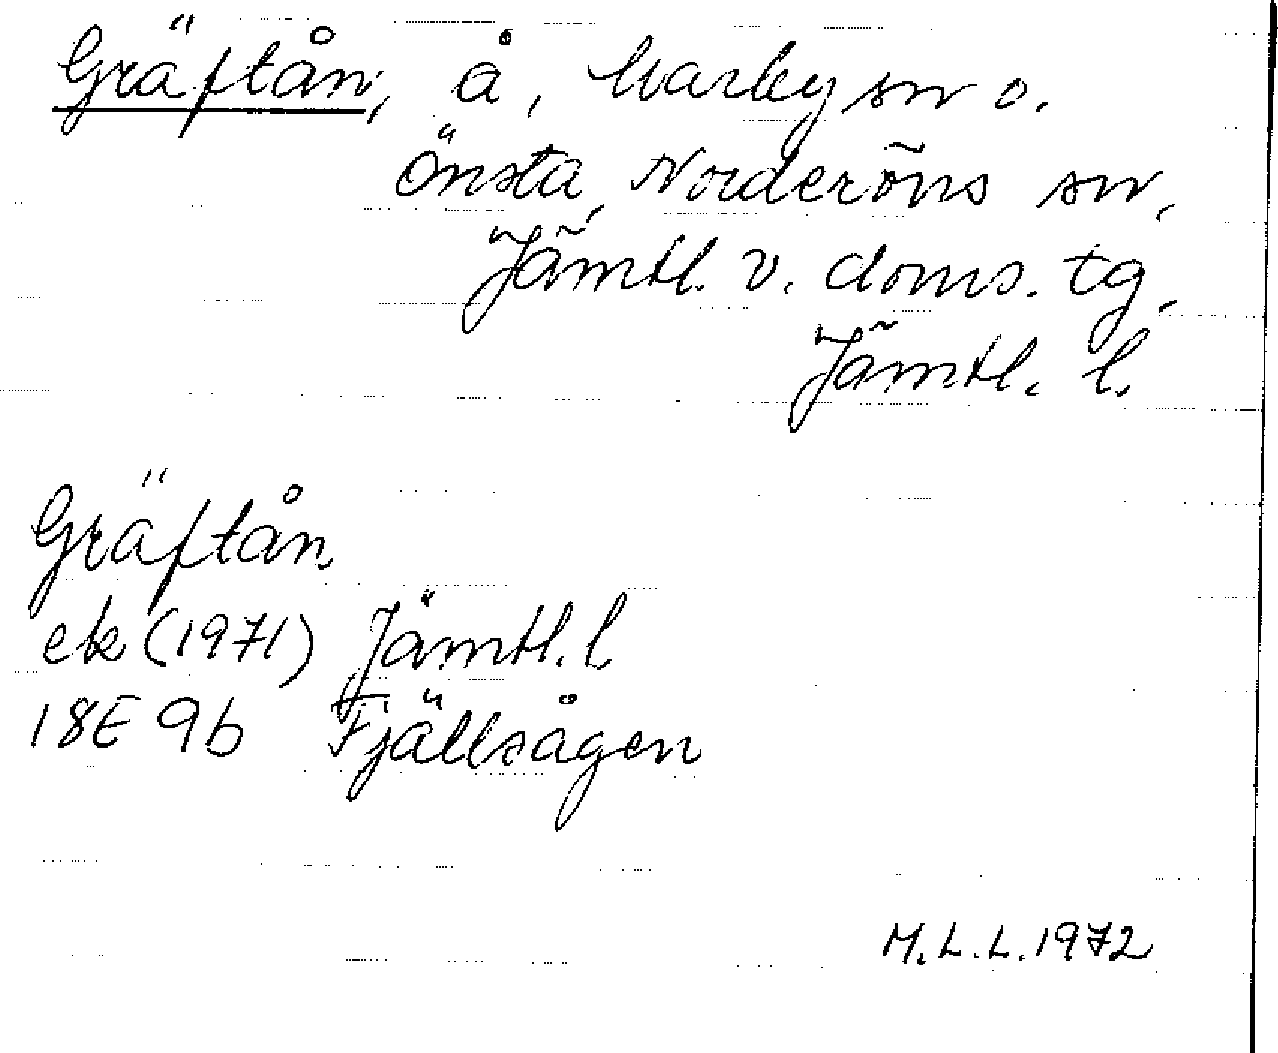 Gräftån, å, Marby sn o.
Önsta, Norderöns sn,
Jämtl. v. doms. tg.
Jämtl. l.
Gräftån
ek (1971) Jämtl. l
18E 9b Fjällsågen
M.L.L. 1972